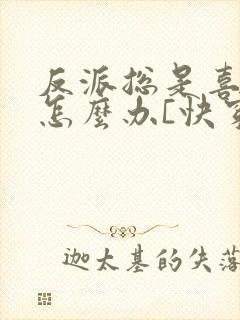 反派总是喜
怎麼办[快
迦太基的失落